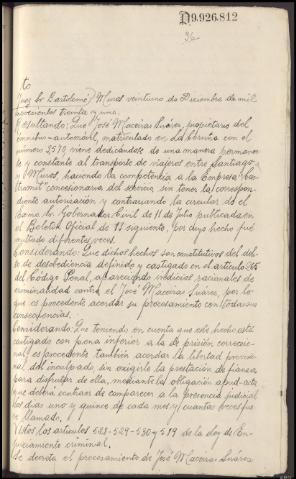 D9.926.812
36
to
Juez Sr Bartolomé) Muros veintiuno de Diciembre de mil
novecientos treinta y uno.
Resultando: Que José Maceiras Suárez, propietario del
ómnibus-automóvil, matriculado en La Coruña con el
número 3570 viene dedicándose de una manera permanen
te y constante al transporte de viajeros entre Santiago
y Muros, haciendo la competencia a la Empresa
concesionaria del servicio sin tener la correspon-
diente autorización y contrariando la circular de el
Excmo. Sr. Gobernador Civil de 11 de Julio publicada en
el Boletín Oficial de 13 siguiente, por cuyo hecho fué
multado diferentes veces.
Considerando: Que dichos hechos son constitutivos del deli-
to de desobediencia definido y castigado en el artículo 265
del Código Penal, apareciendo indicios racionales de
criminalidad contra el José Maceiras Suárez, por lo
que es procedente acordar su procesamiento con todas sus
consecuencias.
Considerando: Que teniendo en cuenta que este hecho está
castigado con pena inferior a la de prisión correccio-
nal, es procedente también acordar la libertad provisio-
nal del inculpado, sin exigirle la prestación de fianza
para disfrutar de ella, mediante la obligación apud-acta
que deberá contraer de comparecer a la presencia judicial
los días uno y quince de cada mes y cuantas veces fue-
re llamado.
Vistos los artículos 528-529-530 y 519 de la ley de En-
juiciamiento criminal.
Se decreta el procesamiento de José Maceiras Suárez